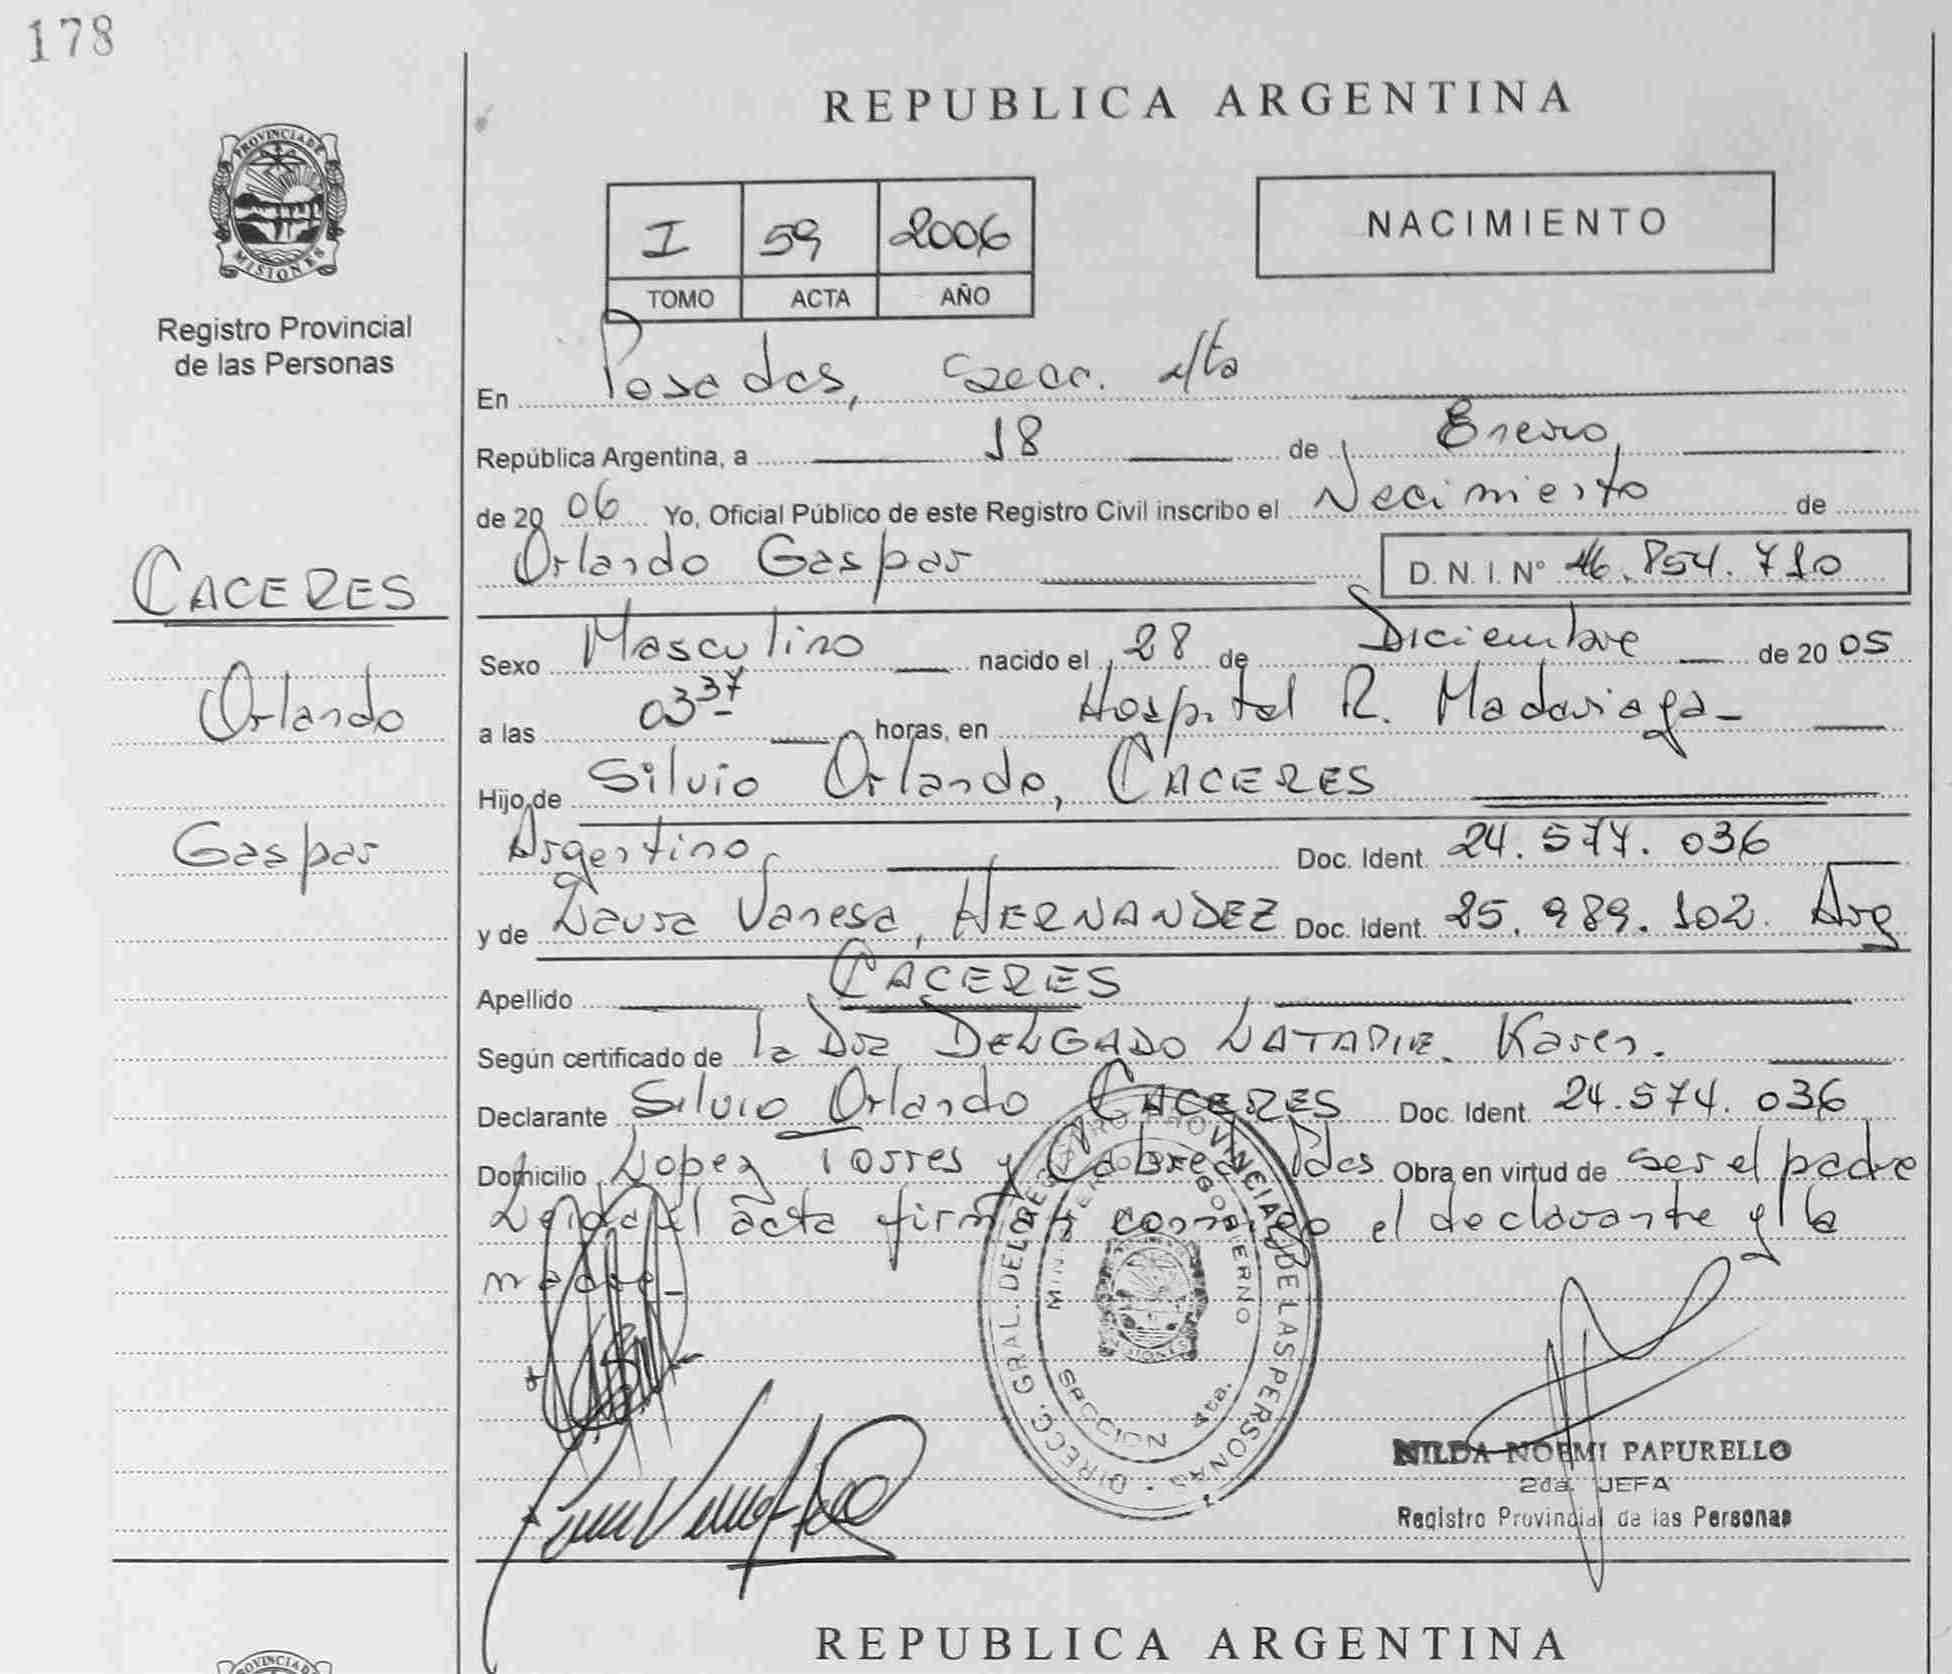 178
REPUBLICA ARGENTINA
PROVINCIA DE
MISIONES
Registro Provincial
de las Personas
I 59 2006
TOMO ACTA AÑO
NACIMIENTO
En Posadas, Secc. 4ta
República Argentina, a 18 de Enero,
de 2006 Yo, Oficial Público de este Registro Civil inscribo el Nacimiento de
Orlando Gaspar D. N. I. Nº 46.854.710
CACERES
Orlando
Gaspar
Sexo Masculino nacido el 28 de Diciembre de 2005
a las 03 37 horas, en Hospital R. Madariaga
Hijo de Silvio Orlando, CACERES
Argentino Doc. Ident. 24.574.036
y de Laura Vanesa, HERNANDEZ Doc. Ident. 25.989.102. Arg
Apellido CACERES
Según certificado de la Dra DELGADO Karen.
Declarante Silvio Orlando CACERES Doc. Ident. 24.574.036
Domicilio Lopez Torres y Cabred Pdas Obra en virtud de ser el padre
Leida el acta firman conmigo el declarante y la
madre
DIRECC. GRAL. DEL REGISTRO PROVINCIAL DE LAS PERSONAS
MINISTERIO DE GOBIERNO
SECCION 4ta.
NILDA NOEMI PAPURELLO
2da. JEFA
Registro Provincial de las Personas
REPUBLICA ARGENTINA